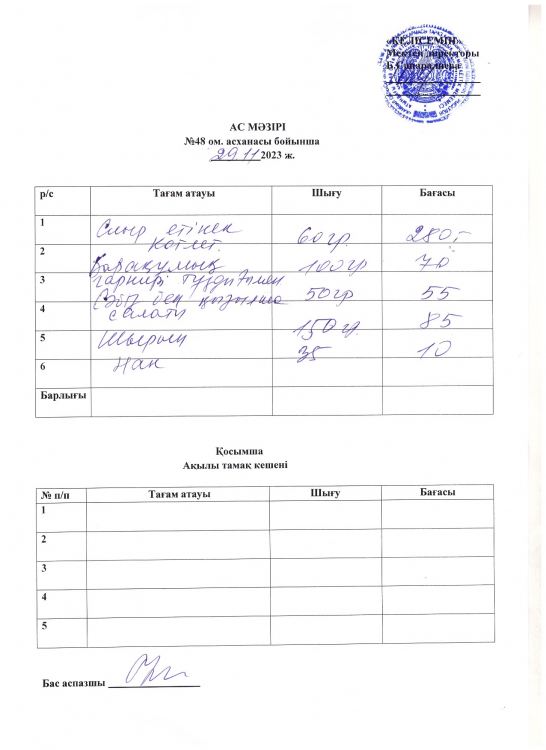 «КЕЛІСЕМІН»
Мектеп директоры
АС МӘЗІРІ
№48 ом. асханасы бойынша
29 11 2023 ж.
р/с Тағам атауы Шығу Бағасы
1 Сиыр етінен котлет. 60 гр. 280,-
2 Қарақұмық гарнирі тұздығымен 100 гр 70
3 Сәбіз бен қызылша салаты 50 гр 55
4 150 гр. 85
5 Шырын
6 Нан 35 10
Барлығы
Қосымша
Ақылы тамақ кешені
№ п/п Тағам атауы Шығу Бағасы
1
2
3
4
5
Бас аспазшы